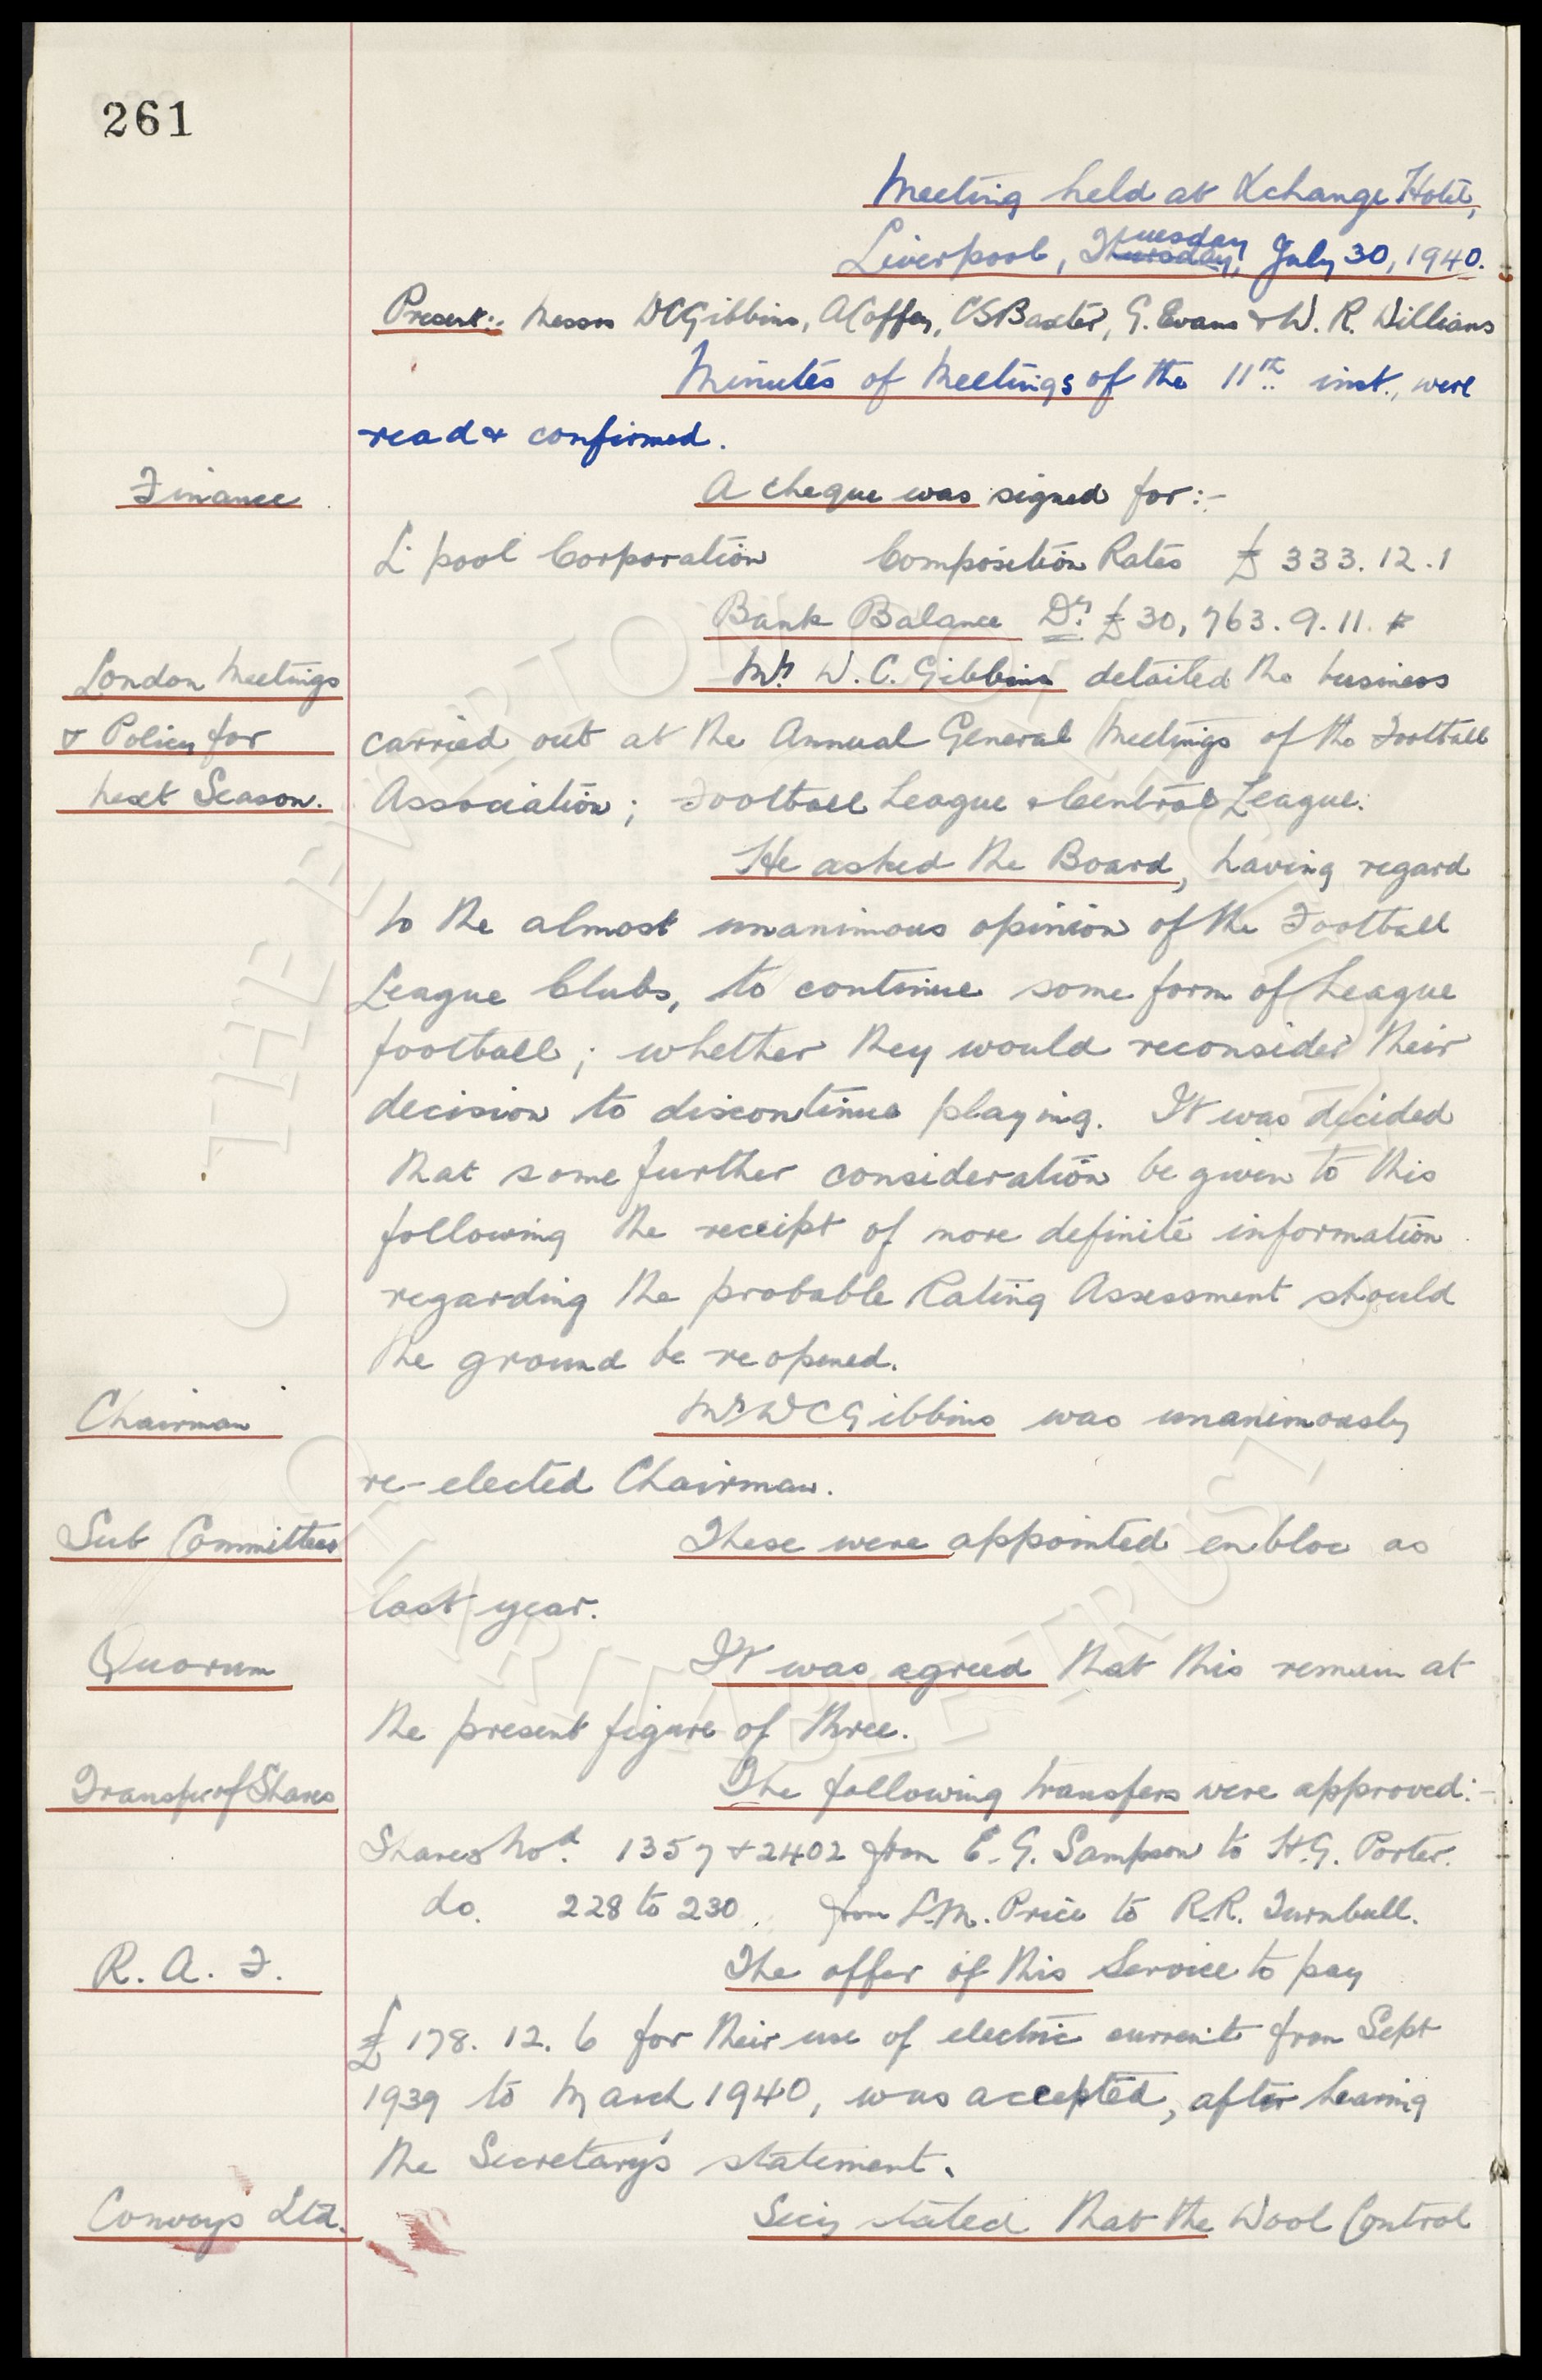 261
Meeting held at Xchange Hotel,
Liverpool, Tuesday July 30, 1940.
Present:- Messrs WCGibbins, ACoffey, CSBaxter, G. Evans & W. R. Williams
Minutes of Meetings of the 11th inst., were
read & confirmed.
Finance A cheque was signed for:-
L'pool Corporation Composition Rates £333.12.1
Bank Balance Dr. £30,763.9.11.
London Meetings Mr. W. C. Gibbins detailed the business
& Policy for carried out at the Annual General Meetings of the Football
next Season. Association; Football League & Central League.
He asked the Board, having regard
to the almost unanimous opinion of the Football
League Clubs, to continue some form of League
football; whether they would reconsider their
decision to discontinue playing. It was decided
that some further consideration be given to this
following the receipt of more definite information
regarding the probable Rating Assessment should
the ground be reopened.
Chairman Mr WCGibbins was unanimously
re-elected Chairman.
Sub Committees These were appointed enbloc as
last year.
Quorum It was agreed that this remain at
the present figure of three.
Transfer of Shares The following transfers were approved:-
Shares No. 1357 & 2402 from E. G. Sampson to H.G. Porter.
do. 228 to 230 from L.M. Price to R.R. Turnbull.
R. A. F. The offer of this Service to pay
£178. 12. 6 for their use of electric current from Sept
1939 to March 1940, was accepted, after hearing
the Secretary's statement.
Convoys Ltd. Secy stated that the Wool Control
THE EVERTON
CHARITABLE TRUST